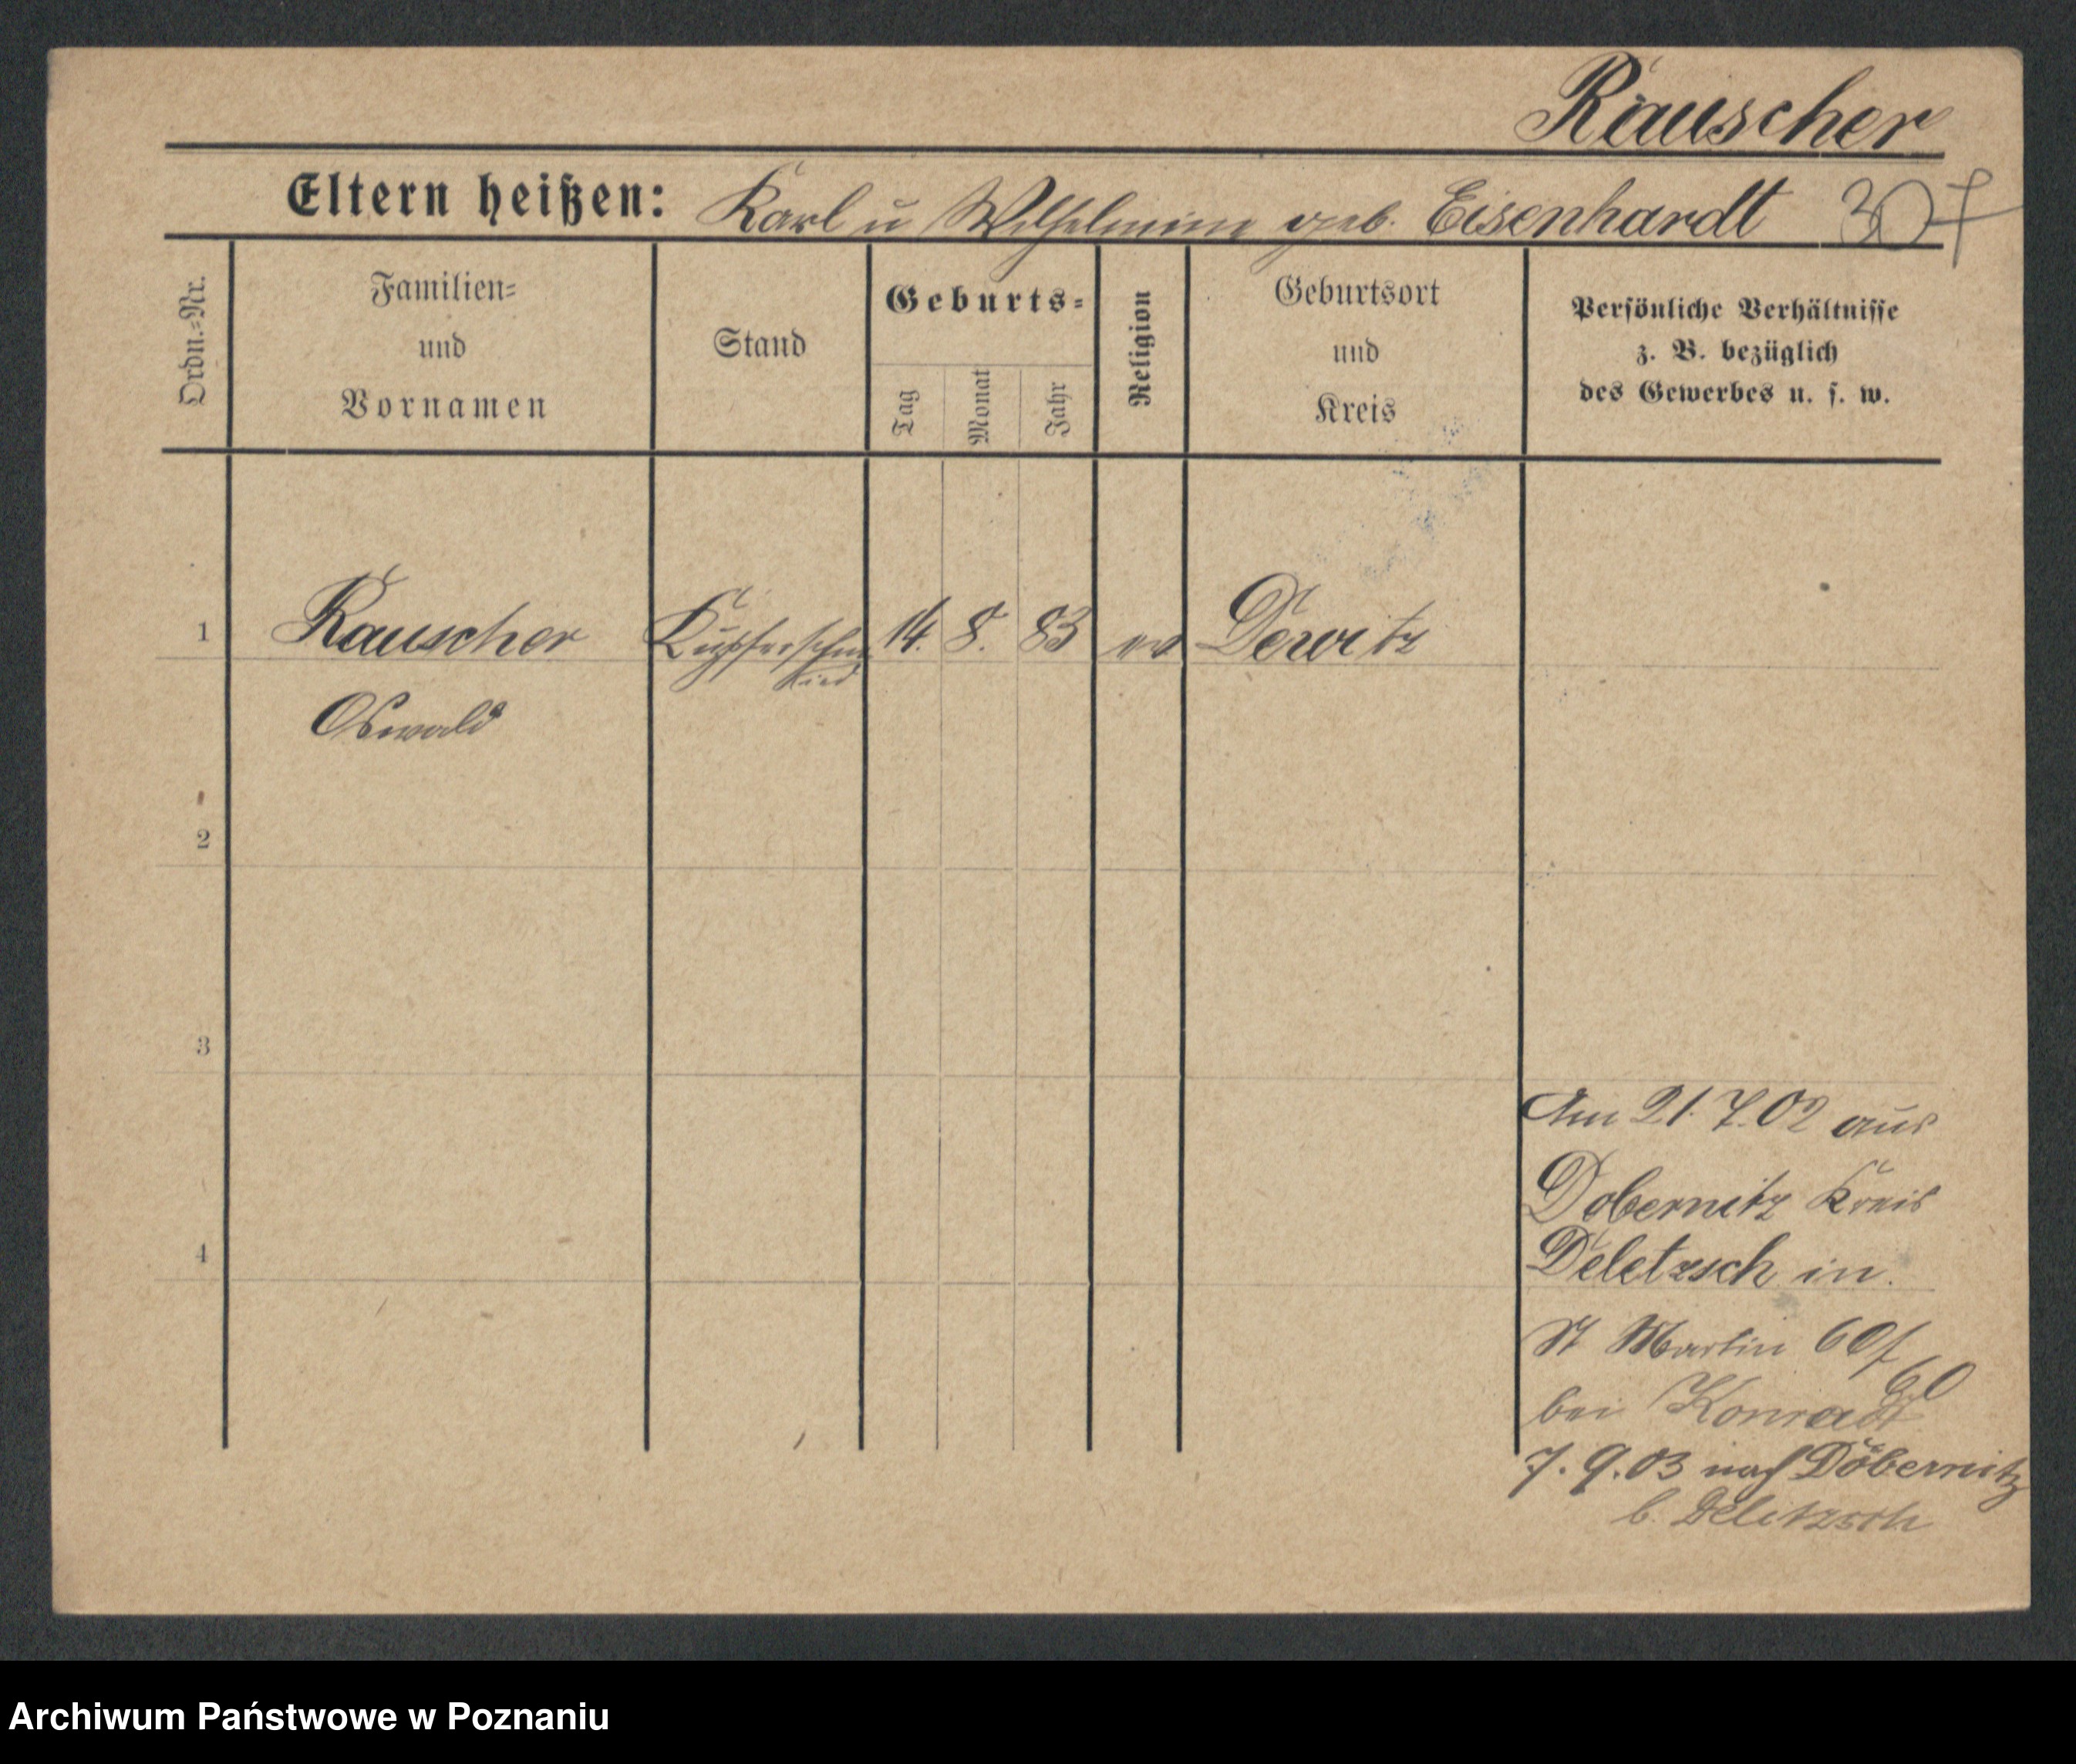 Rauscher
Eltern heißen: Karl u Wilhelmine geb. Eisenhardt 307
Ordn.-Nr.
Familien-
und
Vornamen
Stand
Geburts-
Tag
Monat
Jahr
Religion
Geburtsort
und
Kreis
Persönliche Verhältnisse
z. B. bezüglich
des Gewerbes u. s. w.
1 Rauscher Kupferschm 14. 8. 83 ev
ried
Oswald
2
3
4
Am 21.7.02 aus
Dobernitz Kreis
Deletzsch in
St Martin 60
bei Konradt
7.9.03 nach Döbernitz
b. Delitzsch
Archiwum Państwowe w Poznaniu